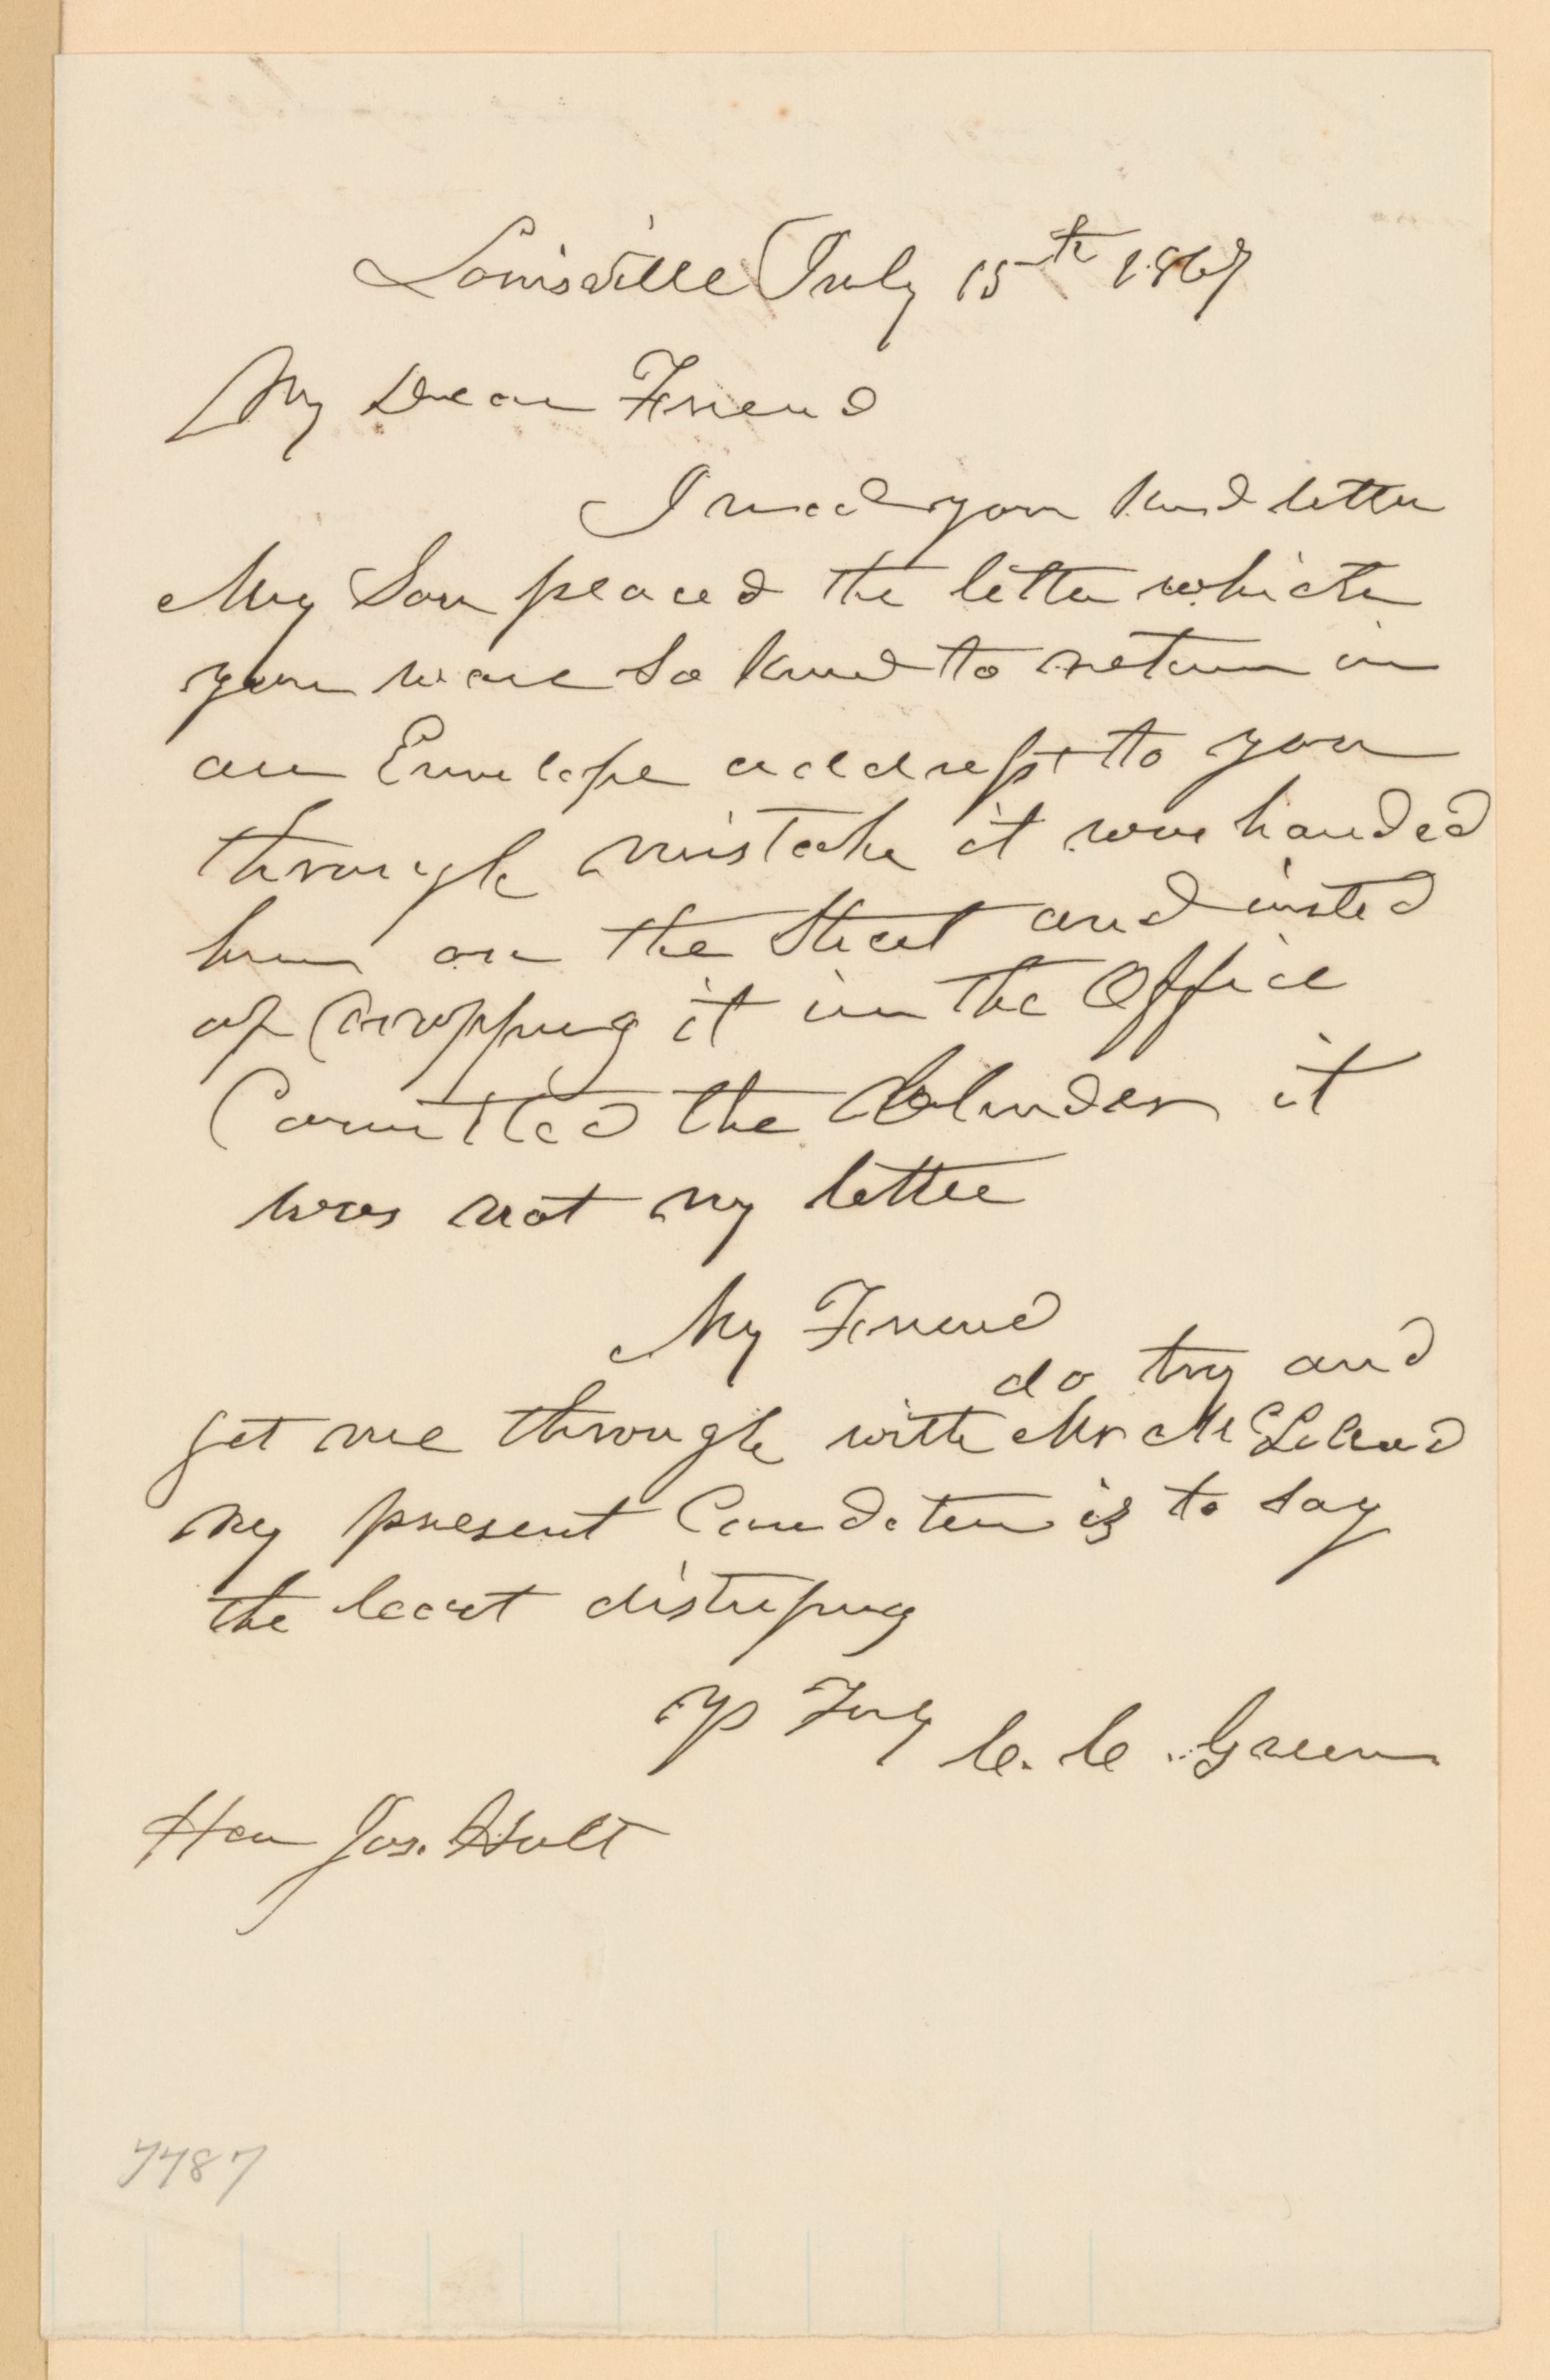 Louisville July 15th 1867
My Dear Friend
I recd your kind letter
My Son placed the letter which
you ware so kind to return in
an Envelope addresst to you
through mistake it was handed
him on the Street and insted
of dropping it in the Office
Comitted the blunder it
was not my letter
My Friend
do try and
get me through with Mr McLeland
my present Condition is to say
the least distressing
Yr Truly C. C. Green
Hon Jos. Holt
7487